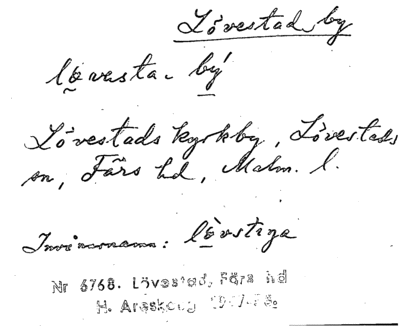 Lövestad by
lövesta- by
Lövestads kyrkby, Lövestads
sn, Färs hd, Malm. l.
Invånarnamn: lövstiga
Nr 6768. Lövestad, Färs hd
H. Areskoug